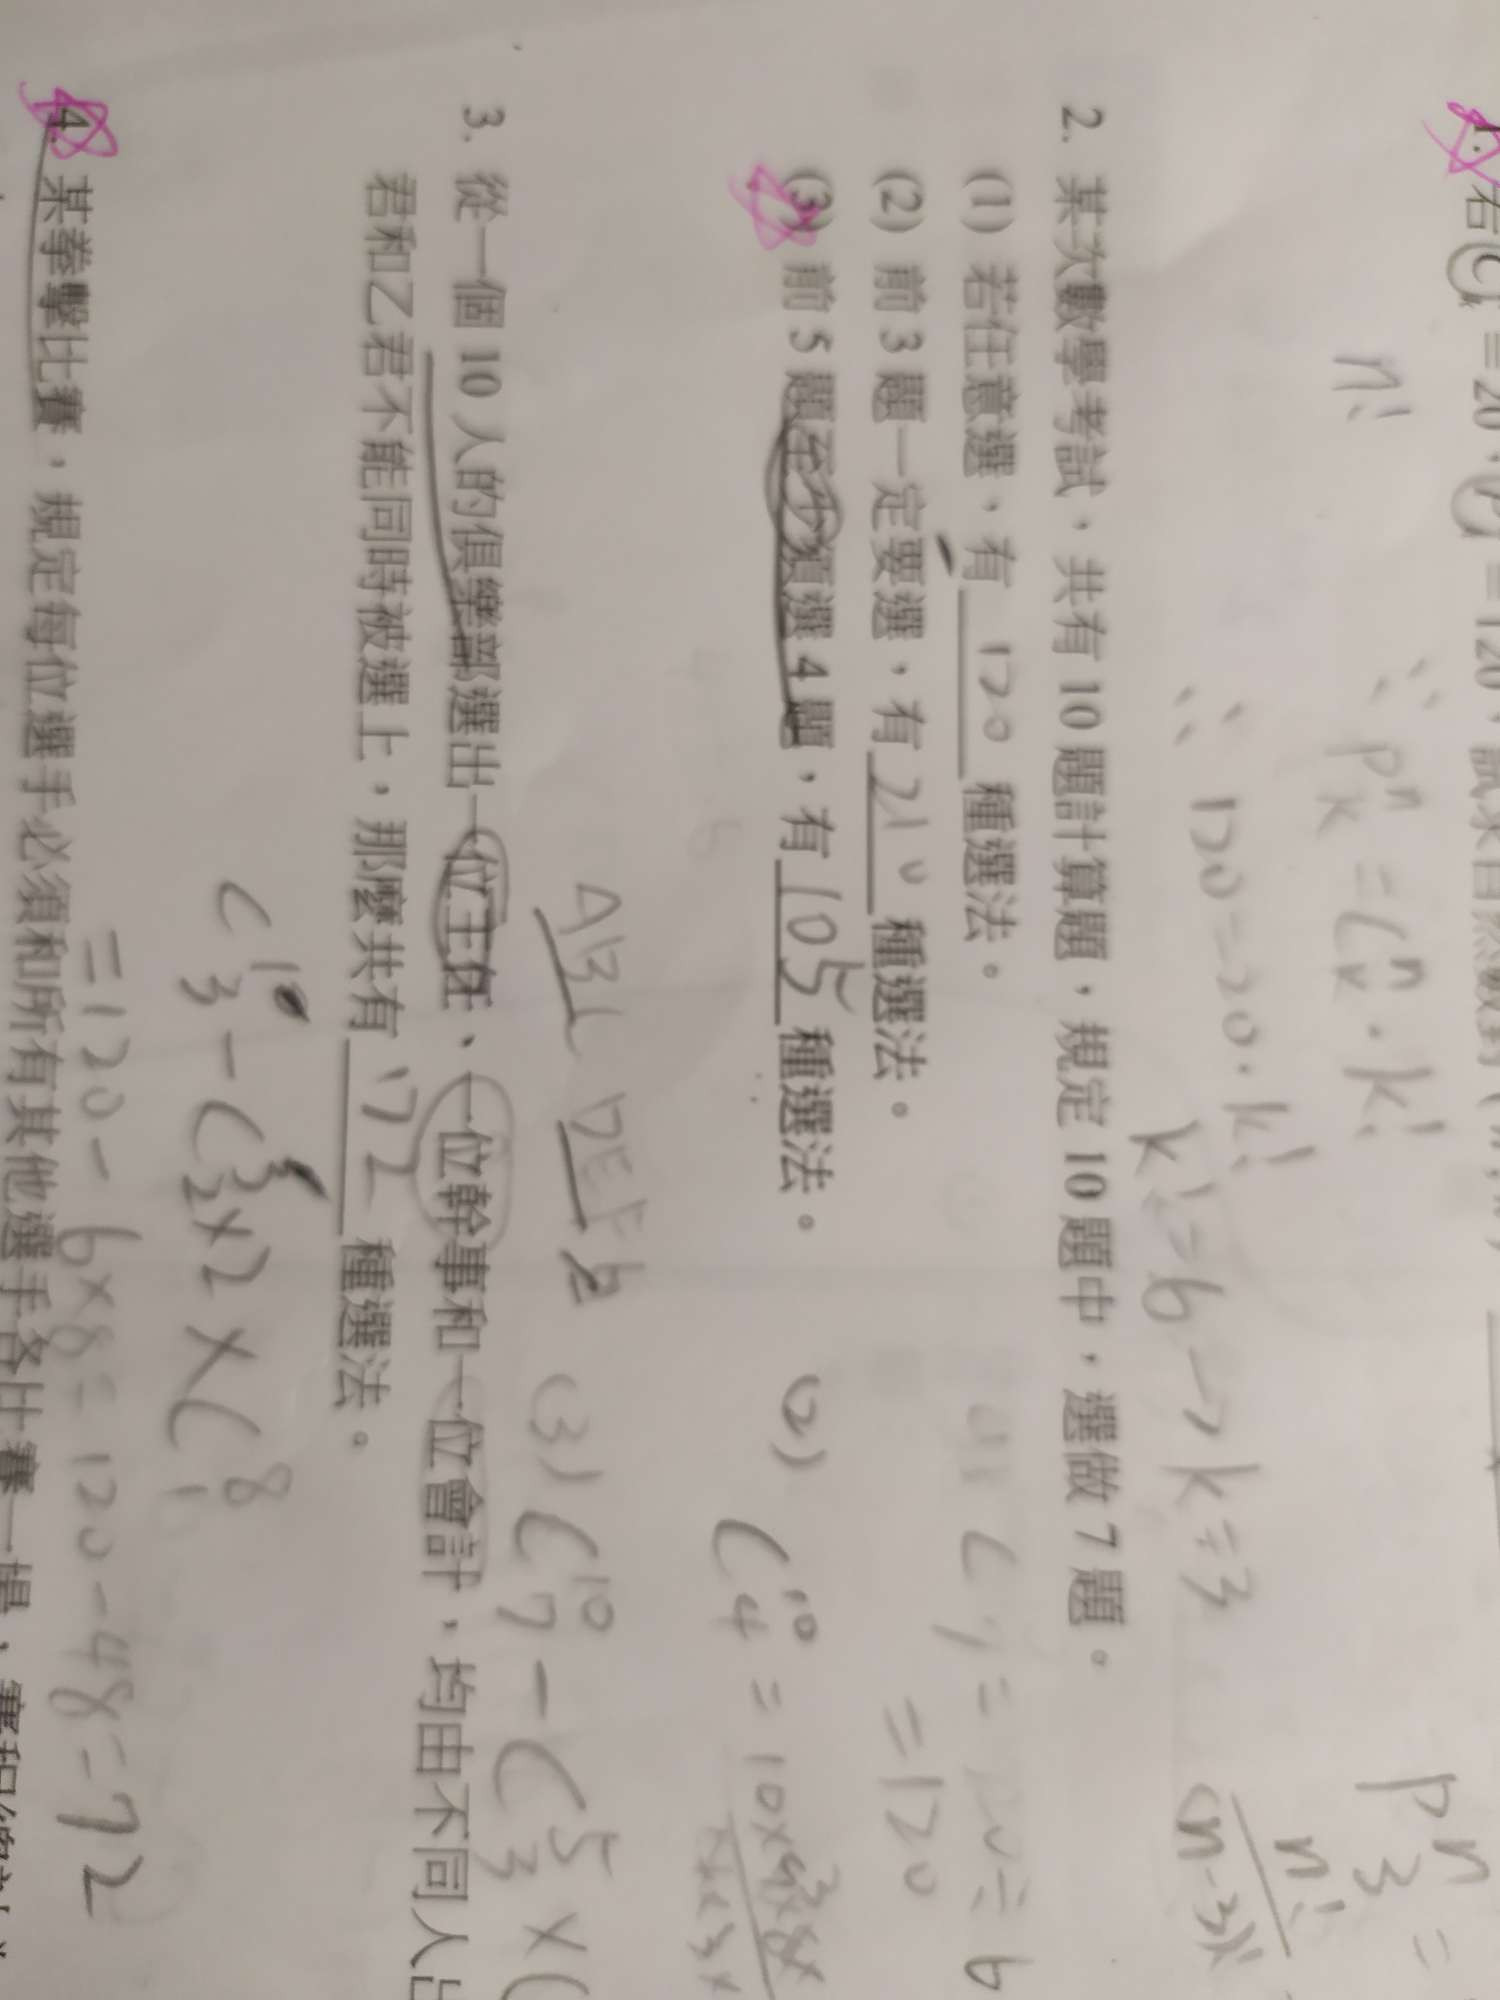 1. 若 C = 20，P = 120，試求自然數對
n!
∵ Pⁿₖ = Cⁿₖ · k!
∴ 120 = 20 · k!
k! = 6 → k = 3
Pⁿ₃ =
n!
(n-3)!
2. 某次數學考試，共有 10 題計算題，規定 10 題中，選做 7 題。
(1) 若任意選，有 120 種選法。
(2) 前 3 題一定要選，有 210 種選法。
(3) 前 5 題至少須選 4 題，有 105 種選法。
= 120
(2) C¹⁰₄ = 10×9×8×
(3) C¹⁰₇ - C⁵₃ × C
ABC DEF
3. 從一個 10 人的俱樂部選出一位主任、一位幹事和一位會計，均由不同人出
君和乙君不能同時被選上，那麼共有 72 種選法。
C¹⁰₃ - C³₂ × 2 × C⁸₁
= 120 - 6 × 8 = 120 - 48 = 72
4. 某拳擊比賽，規定每位選手必須和所有其他選手各比賽一場，賽程